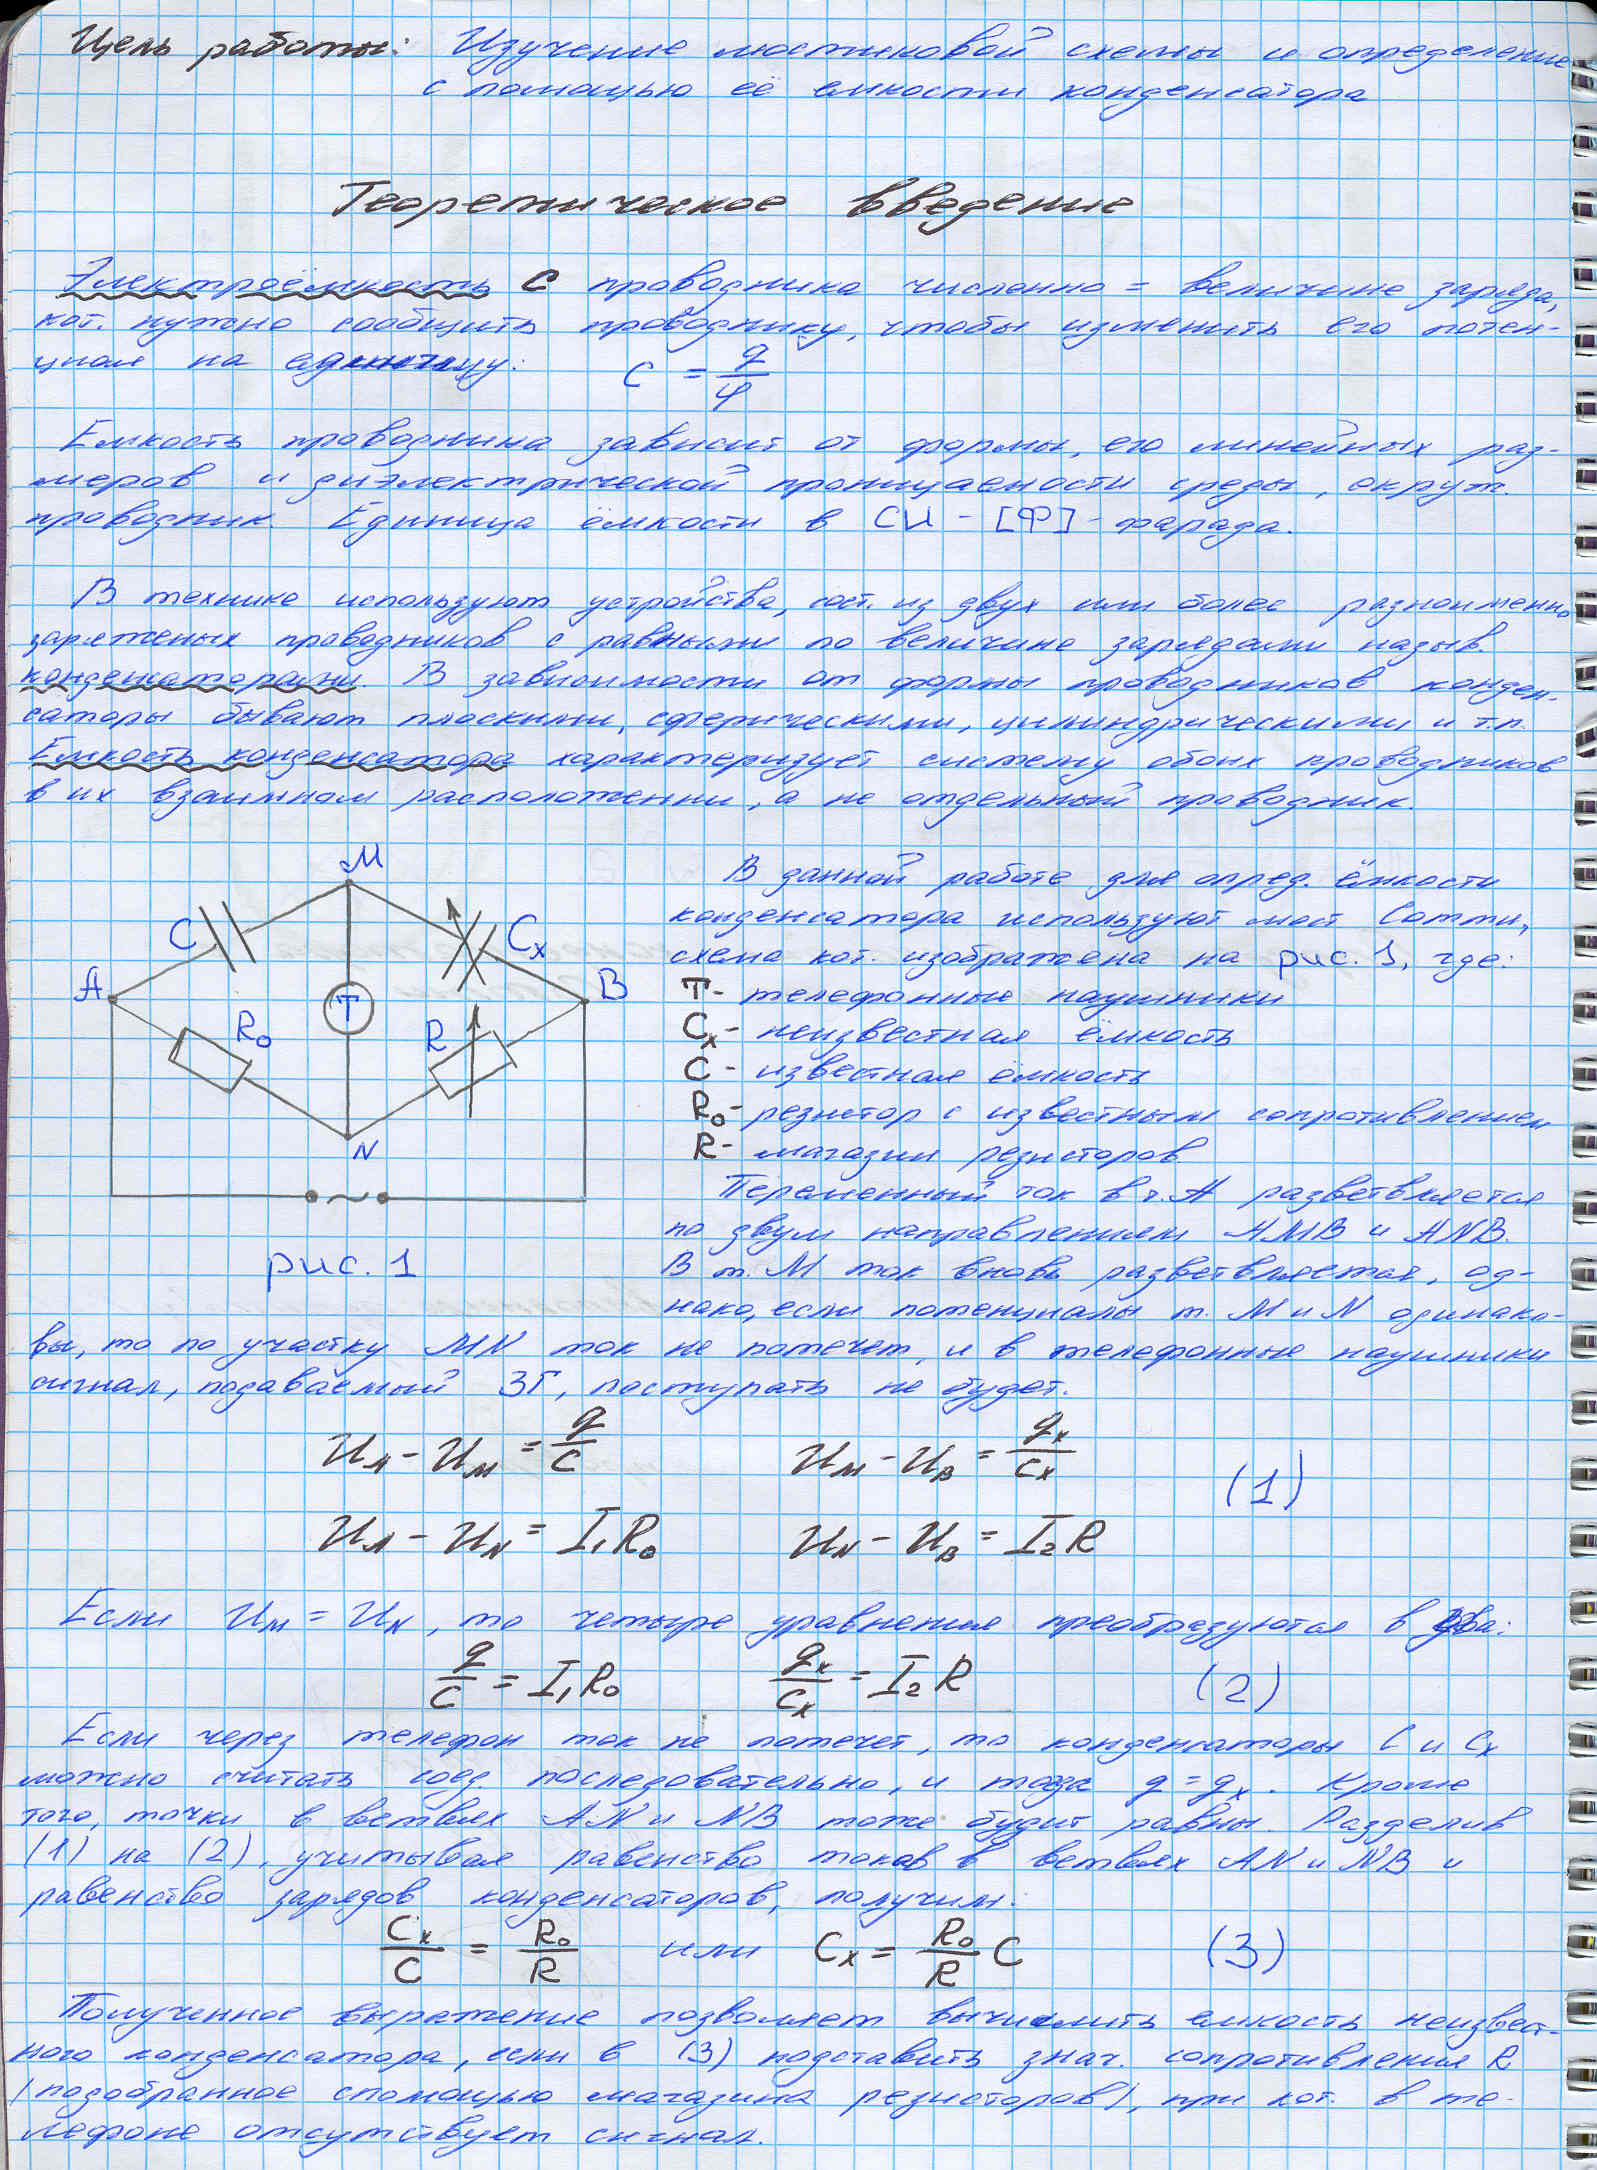 Цель работы: Изучение мостиковой схемы и определение
с помощью её емкости конденсатора
Теоретическое введение
Электроёмкость C проводника численно = величине заряда,
кот. нужно сообщить проводнику, чтобы изменить его потен-
циал на единицу: C = q/φ
Емкость проводника зависит от формы, его линейных раз-
меров и диэлектрической проницаемости среды, окруж.
проводник. Единица ёмкости в СИ - [Ф] - фарада.
В технике используют устройства, сост. из двух или более разноименно
заряженых проводников с равными по величине зарядами назыв.
конденсаторами. В зависимости от формы проводников конден-
саторы бывают плоскими, сферическими, цилиндрическими и т.п.
Емкость конденсатора характеризует систему обоих проводников
в их взаимном расположении, а не отдельный проводник.
M
C
Cx
A
B
T
R₀
R
N
~
рис. 1
В данной работе для опред. ёмкости
конденсатора используют мост Сотти,
схема кот. изображена на рис. 1, где:
T - телефонные наушники
Cx - неизвестная ёмкость
C - известная ёмкость
R₀ - резистор с известным сопротивлением
R - магазин резисторов
Переменный ток в т. A разветвляется
по двум направлениям AMB и ANB.
В т. M ток вновь разветвляется, од-
нако, если потенциалы т. M и N одинако-
вы, то по участку MN ток не потечет, и в телефонные наушники
сигнал, подаваемый ЗГ, поступать не будет.
U_A - U_M = q/C U_M - U_B = qx/Cx (1)
U_A - U_N = I₁R₀ U_N - U_B = I₂R
Если U_M = U_N, то четыре уравнения преобразуются в два:
q/C = I₁R₀ qx/Cx = I₂R (2)
Если через телефон ток не потечет, то конденсаторы C и Cx
можно считать соед. последовательно, и тогда q = qx. Кроме
того, точки в ветвях AN и NB тоже будут равны. Разделив
(1) на (2), учитывая равенство токов в ветвях AN и NB и
равенство зарядов конденсаторов, получим:
Cx/C = R₀/R или Cx = R₀/R C (3)
Полученное выражение позволяет вычислить емкость неизвест-
ного конденсатора, если в (3) подставить знач. сопротивления R
(подобранное спомощью магазина резисторов), при кот. в те-
лефоне отсутствует сигнал.